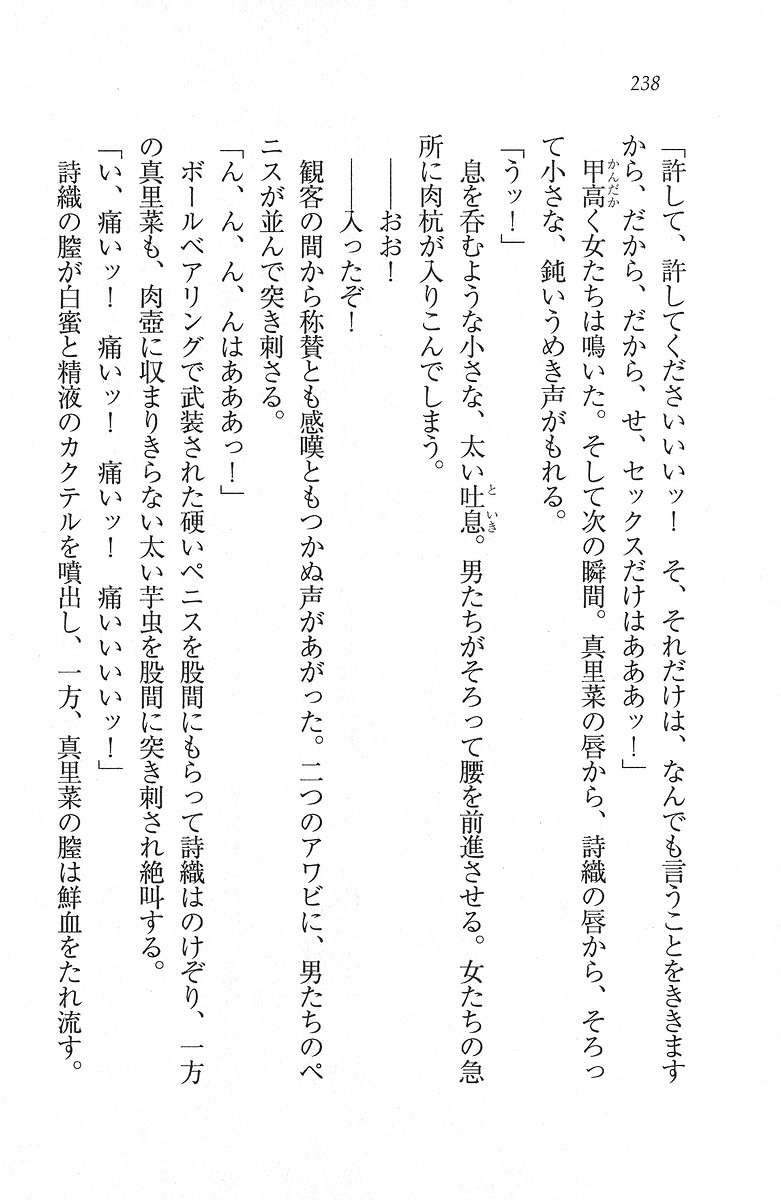 238
「許して、許してくださいいいッ！　そ、それだけは、なんでも言うことをききます
から、だから、だから、せ、セックスだけはあああッ！」
甲高く女たちは鳴いた。そして次の瞬間。真里菜の唇から、詩織の唇から、そろっ
て小さな、鈍いうめき声がもれる。
「うッ！」
息を呑むような小さな、太い吐息。男たちがそろって腰を前進させる。女たちの急
所に肉杭が入りこんでしまう。
――おお！
――入ったぞ！
観客の間から称賛とも感嘆ともつかぬ声があがった。二つのアワビに、男たちのペ
ニスが並んで突き刺さる。
「ん、ん、ん、んはあああっ！」
ボールベアリングで武装された硬いペニスを股間にもらって詩織はのけぞり、一方
の真里菜も、肉壺に収まりきらない太い芋虫を股間に突き刺され絶叫する。
「い、痛いッ！　痛いッ！　痛いッ！　痛いいいいッ！」
詩織の膣が白蜜と精液のカクテルを噴出し、一方、真里菜の膣は鮮血をたれ流す。